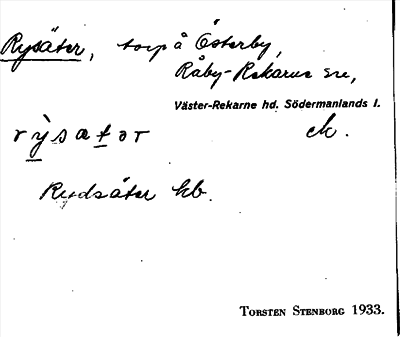 Rysäter, torp å Österby,
Råby-Rekarne sn,
Väster-Rekarne hd. Södermanlands l.
rỳsatər ek.
Rydsäter kb.
TORSTEN STENBORG 1933.